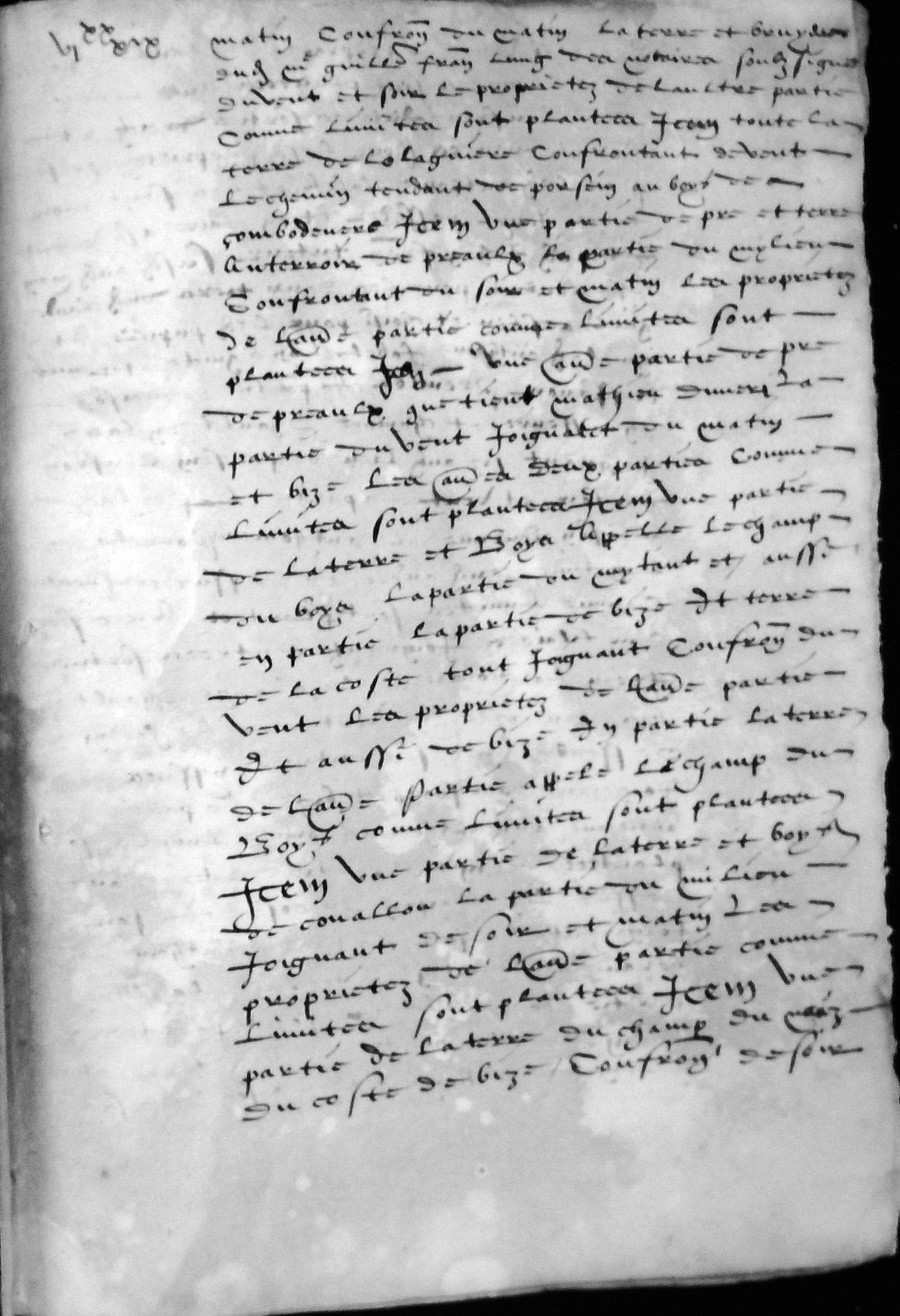 vi xx xix
matin Confron du matin la terre et bruyeres
dud me guille fran lung des notaires soub signes
du vent et soir le proprietez de laultre partie
Comme limites sont plantees Item toute la
terre de lolagniere Confrontant devent
le chemin tendant de porsein au boys de
combodevere Item vne partie de pre et terre
au terroir de preaulx la partie du mylieu
Confrontant du soir et matin les proprietez
de laue partie comme limites sont
plantees Item vne aue partie de pre
de preaulx que tient mathieu la
partie du vent Joignatet du matin
et bize les aues deux parties Comme
limites sont plantees Item vne partie
de la terre et Boys appelle le champ
du boys la partie du mytant et aussi
en partie la partie de bize Et terre
de la coste tout Joignant Confron du
vent les proprietez de laue partie
Et aussi de bize En partie la terre
de laue Partie appele le champ du
Boys comme limites sont plantees
Item vne partie de la terre et boys
de covallon la partie du milieu
Joignant de soir et matin les
proprietez de laue partie comme
limites sont plantees Item vne
partie de la terre du champ du
du coste de bize Confron de soir